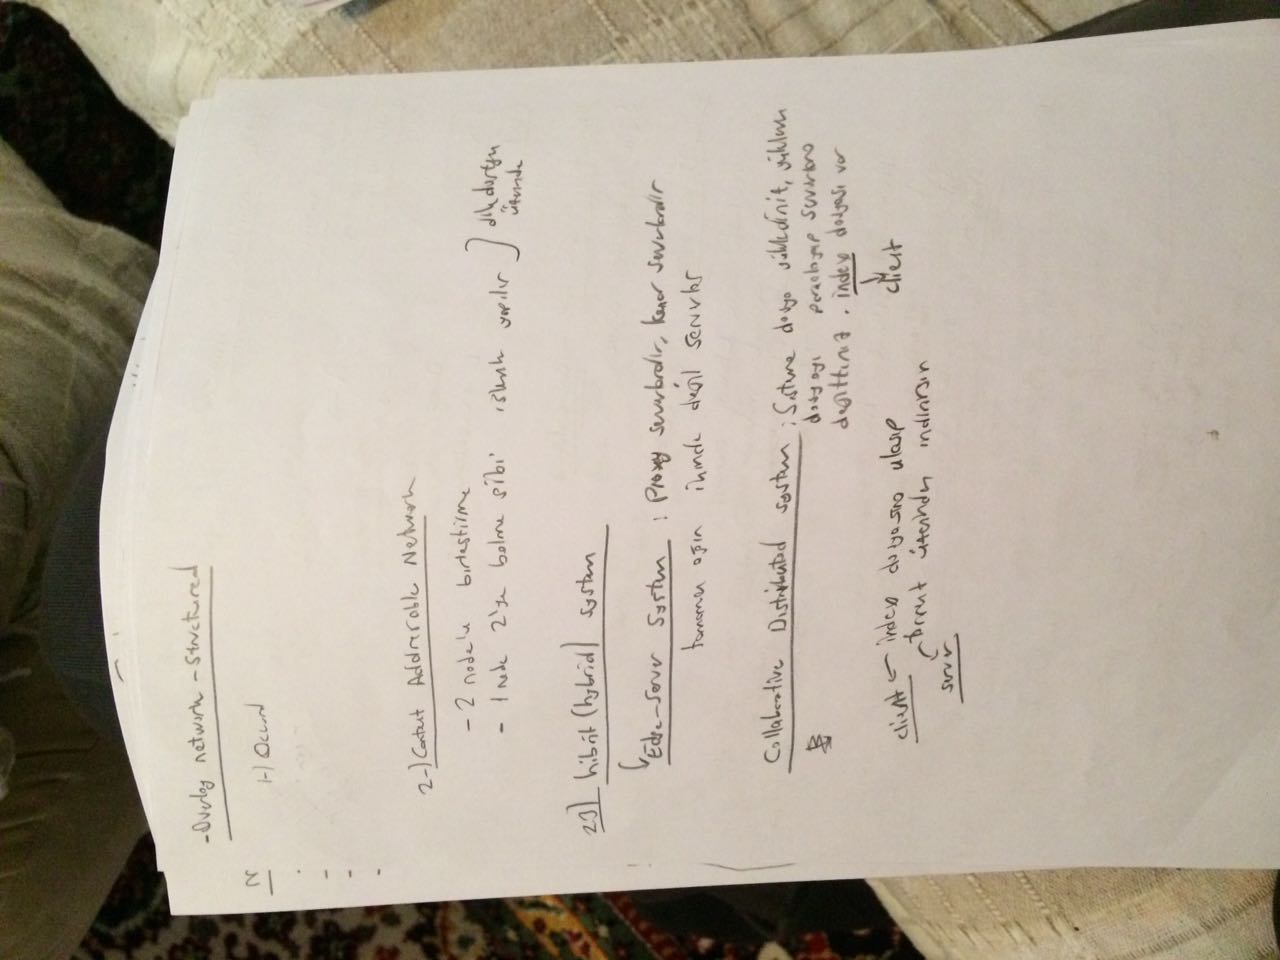 -Overlay network -structured
1-)
2-) Content Addresable Network
- 2 node'u birleştirme
- 1 node 2'ye bölme gibi işlemler yapılır } dikdörtgen üzerinde
hibrit (hybrid) system
Edge-Server System : Proxy serverlardır, kenar serverlardır
tamamen ağın içinde değil serverlar
Collaborative Distributed system : Sisteme dosya yüklediniz, yüklenen
dosyayı parçalayıp serverlara
dağıttınız . index dosyası var
client
client index dosyasına ulaşıp
torrent üzerinden indirirsin
server